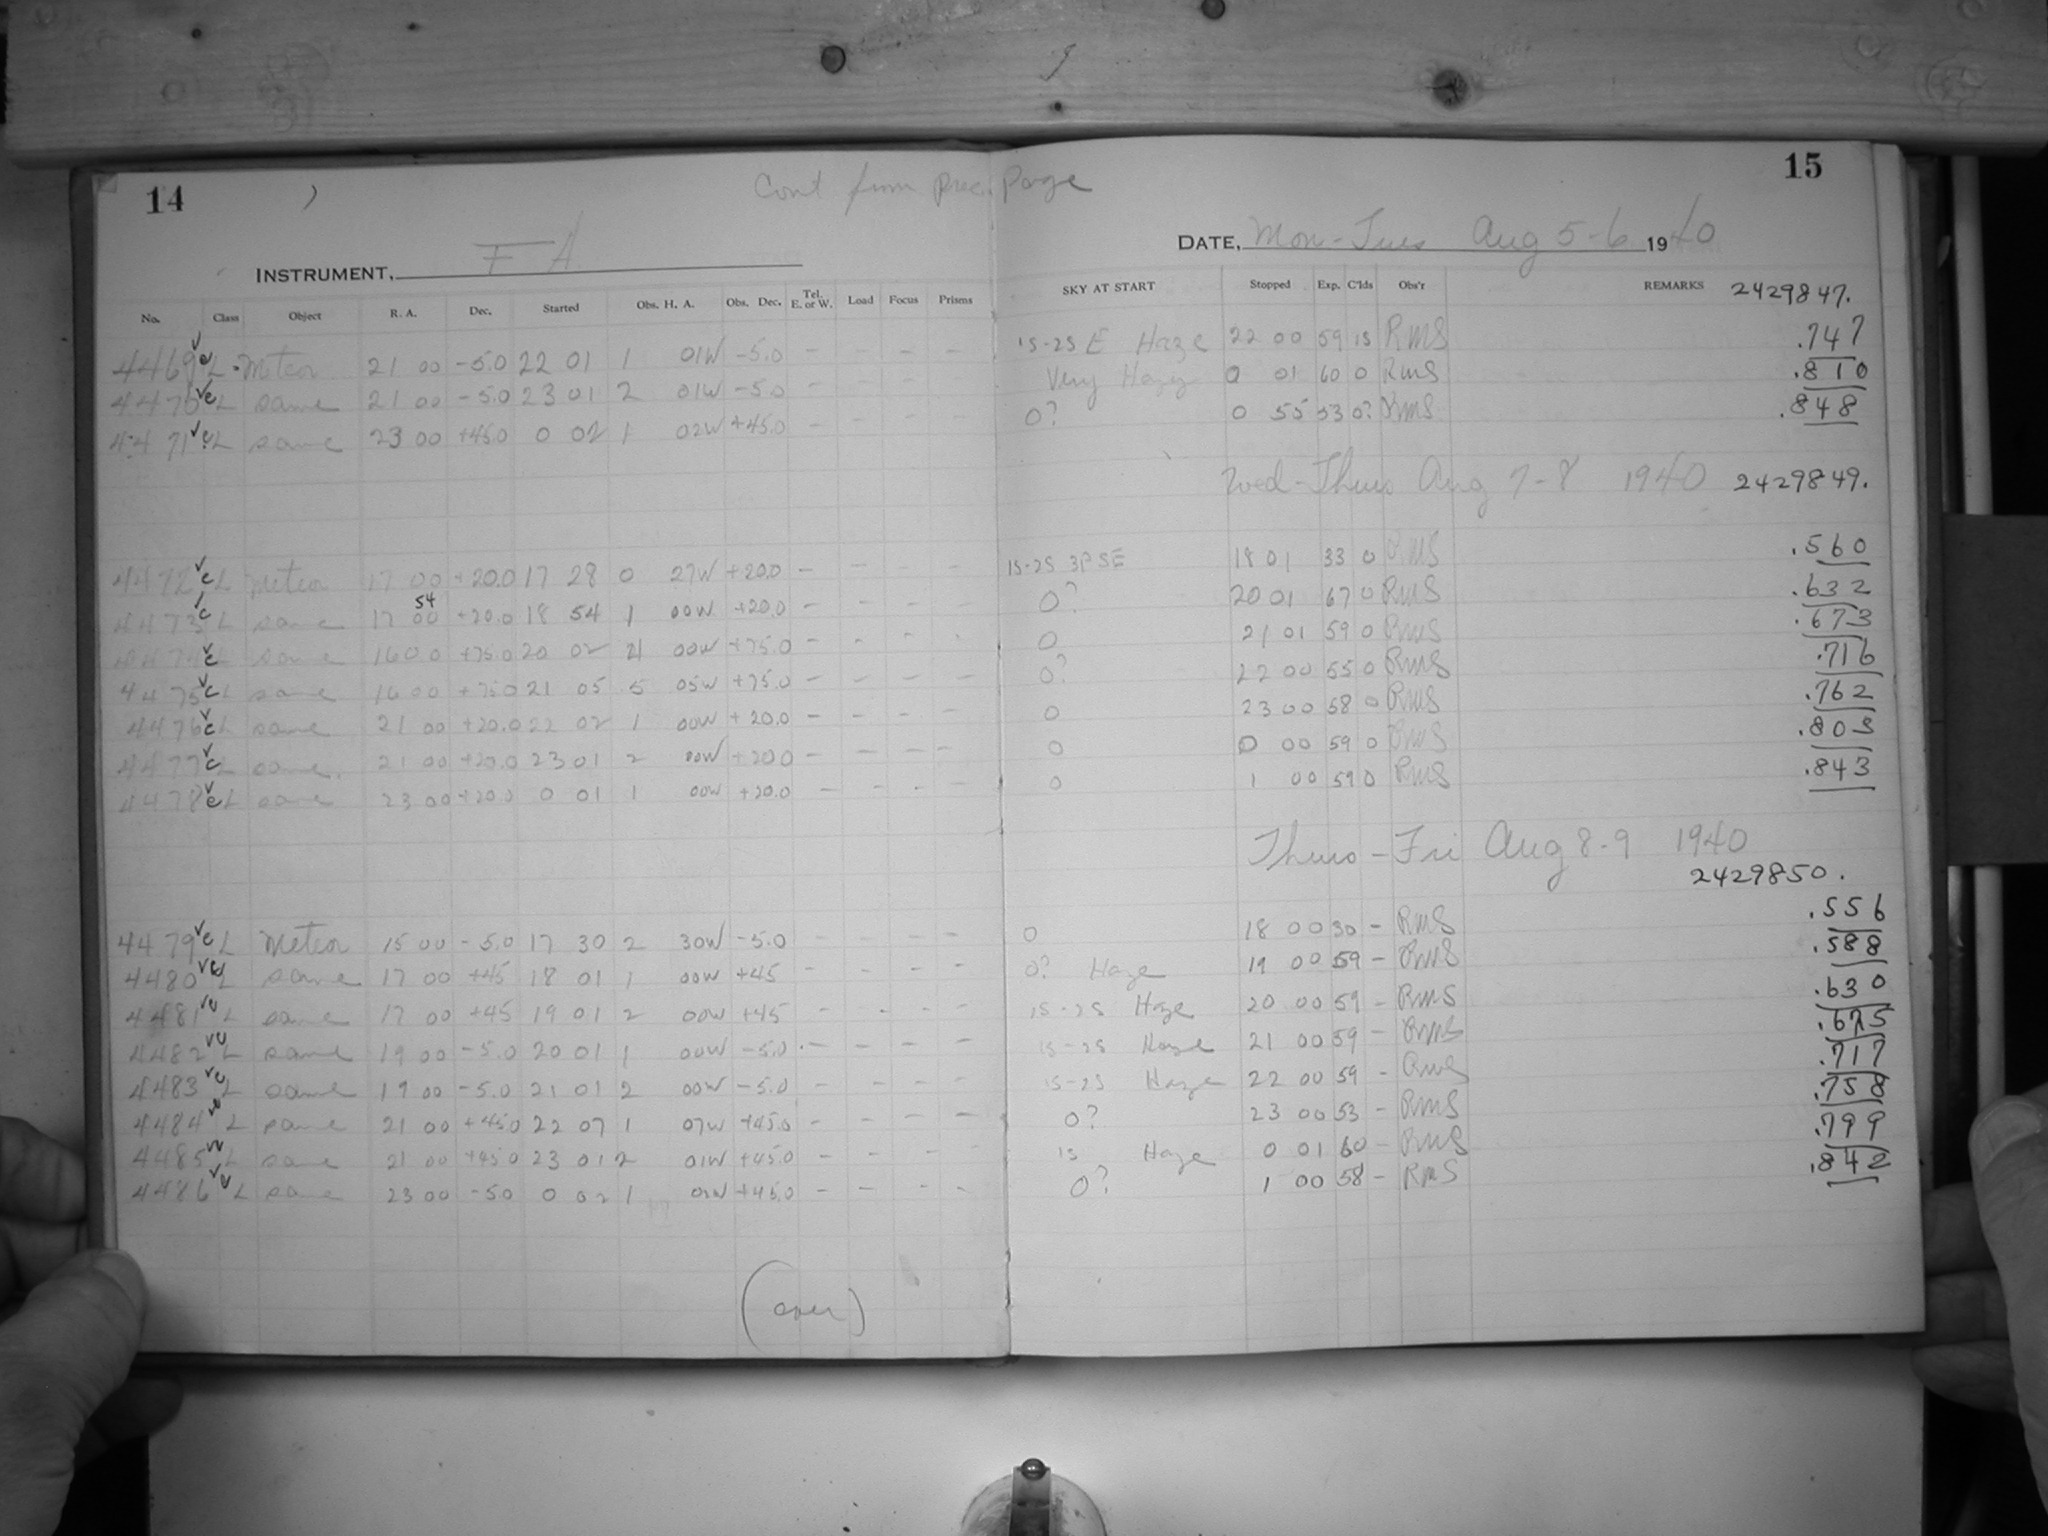 14
Cont from prec. page
15
INSTRUMENT, FA
DATE, Mon-Tues Aug 5-6 1940
No. Class Object R. A. Dec. Started Obs. H. A. Obs. Dec. Tel. E. or W. Load Focus Prisms SKY AT START Stopped Exp. C'lds Obs'r REMARKS 2429847.
4469 L Meteor 21 00 -5.0 22 01 1 01W -5.0 - - - - 1S-2S E Haze 22 00 59 1S RMS .747
4470 L same 21 00 -5.0 23 01 2 01W -5.0 - - - - Very Hazy 0 01 60 0 RMS .810
4471 L same 23 00 +45.0 0 02 1 02W +45.0 - - - - 0? 0 55 53 0? RMS .848
Wed-Thurs Aug 7-8 1940 2429849.
4472 L Meteor 17 00 +20.0 17 28 0 27W +20.0 - - - - 1S-2S 3PSE 18 01 33 0 RMS .560
54
4473 L same 17 00 +20.0 18 54 1 00W +20.0 - - - - 0? 20 01 67 0 RMS .632
4474 L same 16 00 +75.0 20 02 4 00W +75.0 - - - - 0 21 01 59 0 RMS .673
4475 L same 16 00 +75.0 21 05 5 05W +75.0 - - - - 0? 22 00 55 0 RMS .716
4476 L same 21 00 +20.0 22 02 1 00W +20.0 - - - - 0 23 00 58 0 RMS .762
4477 L same 21 00 +20.0 23 01 2 00W +20.0 - - - - 0 0 00 59 0 RMS .803
4478 L same 23 00 +20.0 0 01 1 00W +20.0 - - - - 0 1 00 59 0 RMS .843
Thurs-Fri Aug 8-9 1940
2429850.
4479 L Meteor 15 00 -5.0 17 30 2 30W -5.0 - - - - 0 18 00 30 - RMS .556
4480 L same 17 00 +45 18 01 1 00W +45 - - - - 0? Haze 19 00 59 - RMS .588
4481 L same 17 00 +45 19 01 2 00W +45 - - - - 1S-2S Haze 20 00 59 - RMS .630
4482 L same 19 00 -5.0 20 01 1 00W -5.0 - - - - 1S-2S Haze 21 00 59 - RMS .675
4483 L same 19 00 -5.0 21 01 2 00W -5.0 - - - - 1S-2S Haze 22 00 59 - RMS .717
4484 L same 21 00 +45.0 22 07 1 07W +45.0 - - - - 0? 23 00 53 - RMS .758
4485 L same 21 00 +45.0 23 01 2 01W +45.0 - - - - 1S Haze 0 01 60 - RMS .799
4486 L same 23 00 -5.0 0 02 1 01W +45.0 - - - - 0? 1 00 58 - RMS .842
(over)